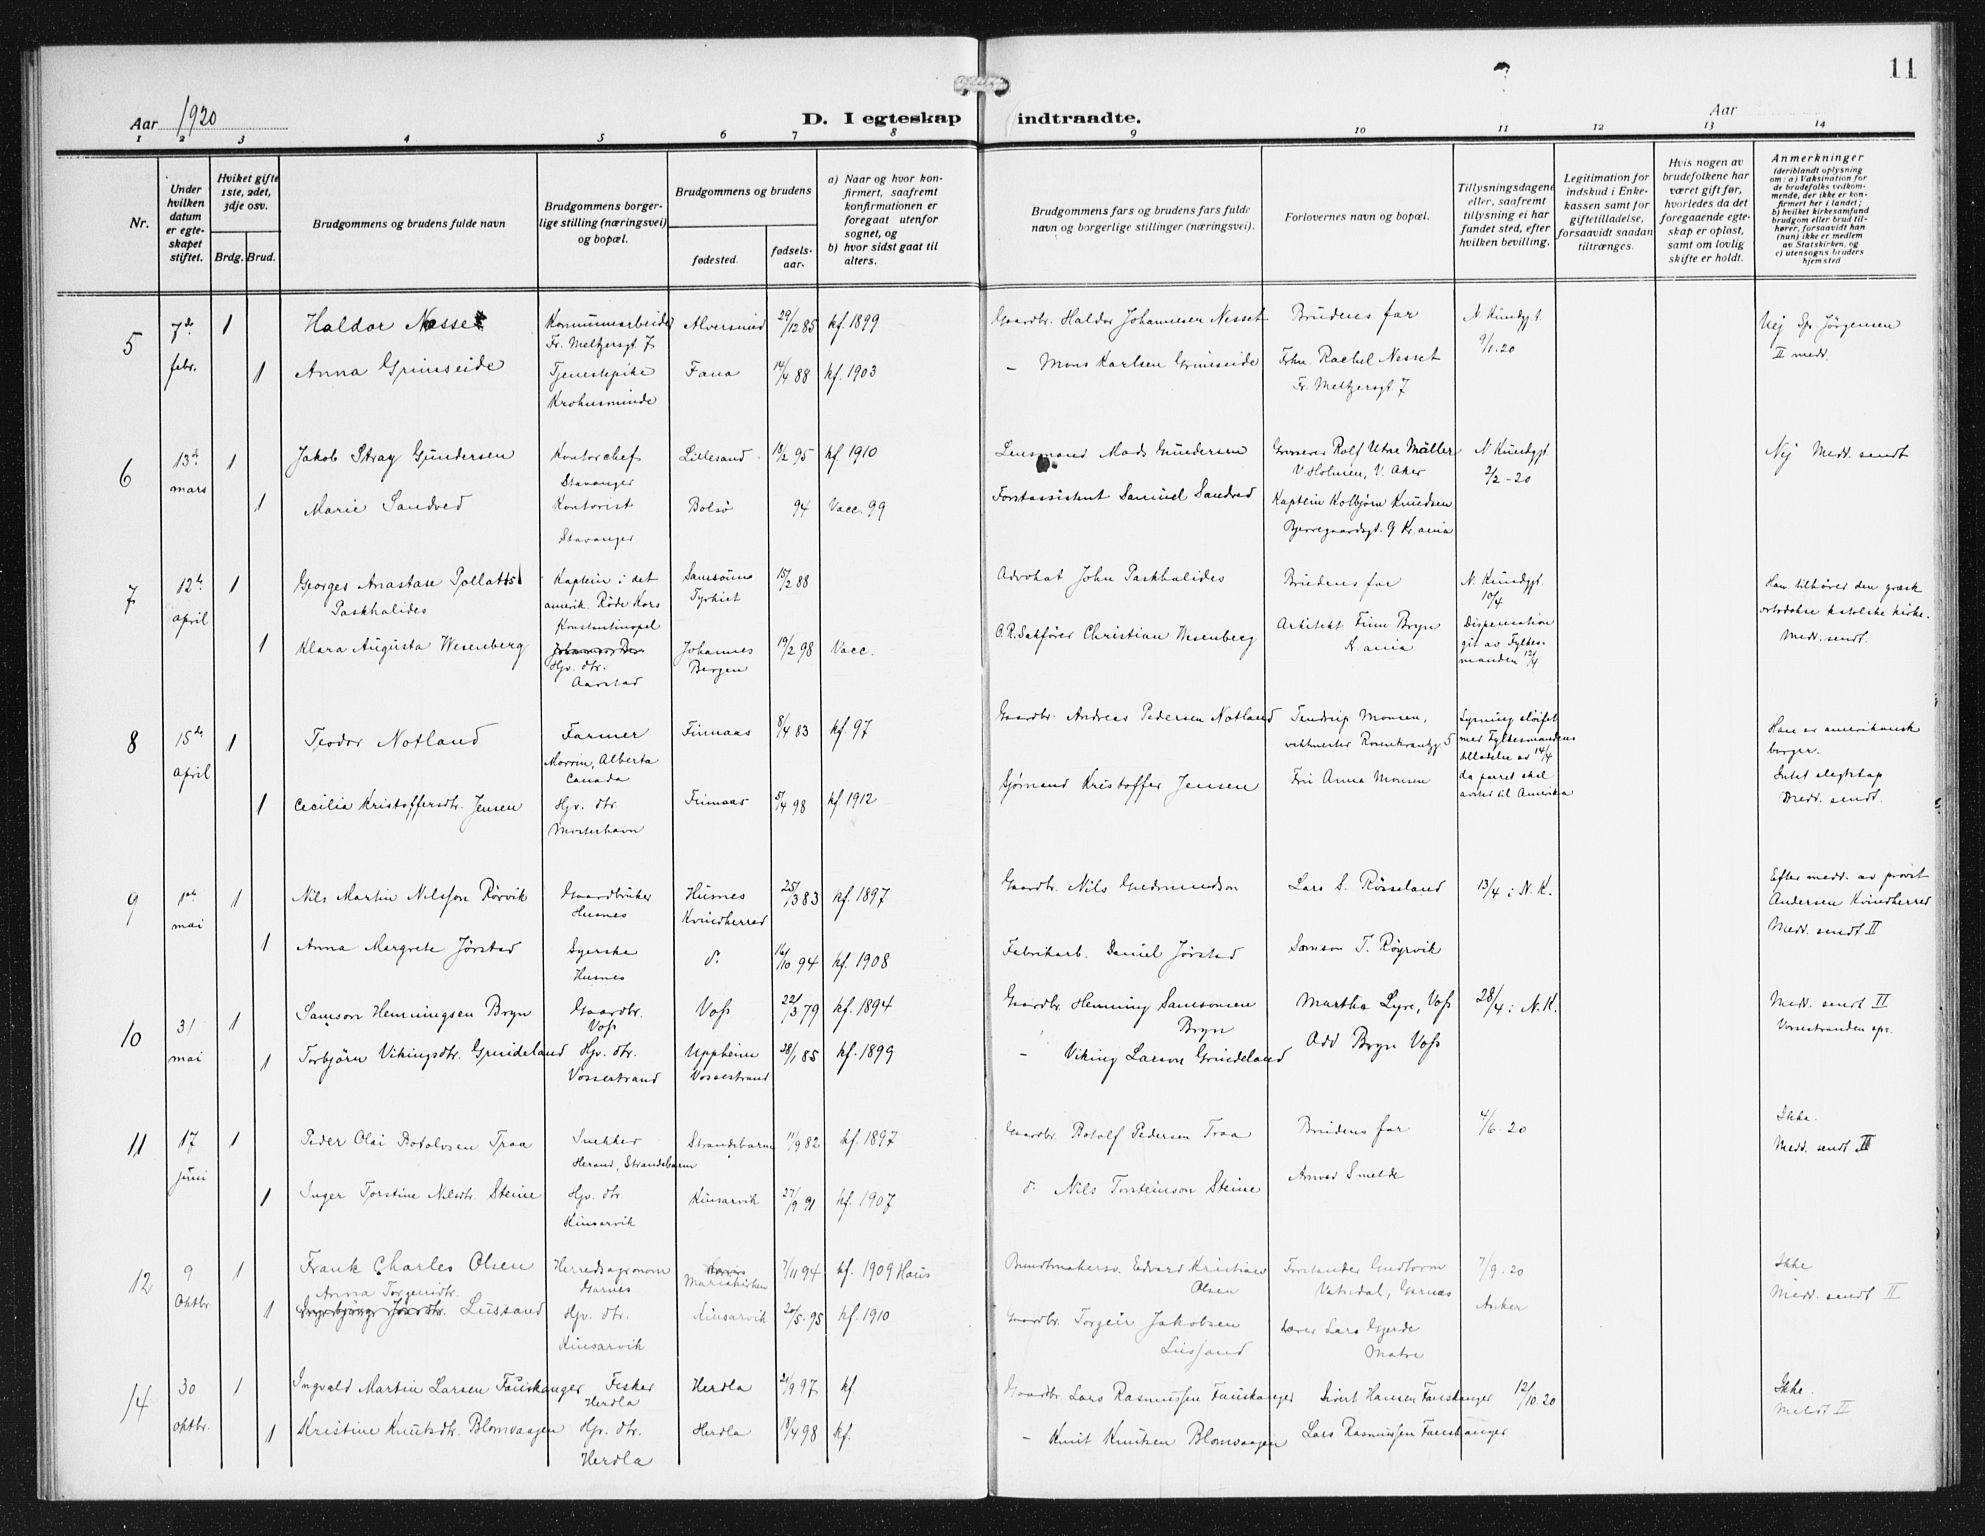 11
Aar 1920
D. I egteskap indtraadte.
Aar
1 2 3 4 5 6 7 8 9 10 11 12 13 14
Nr.
Under hvilken datum er egteskapet stiftet.
Hviket gifte 1ste, 2det, 3dje osv.
Brdg. Brud.
Brudgommens og brudens fulde navn
Brudgommens borgerlige stilling (næringsvei) og bopæl.
Brudgommens og brudens
fødested.
fødselsaar.
a) Naar og hvor konfirmert, saafremt konfirmationen er foregaat utenfor sognet, og
b) hvor sidst gaat til alters.
Brudgommens fars og brudens fars fulde navn og borgerlige stillinger (næringsvei).
Forlovernes navn og bopæl.
Tillysningsdagene eller, saafremt tillysning ei har fundet sted, efter hvilken bevilling.
Legitimation for indskud i Enkekassen samt for giftetilladelse, forsaavidt saadan tiltrænges.
Hvis nogen av brudefolkene har været gift før, hvorledes da det foregaaende egteskap er opløst, samt om lovlig skifte er holdt.
Anmerkninger
(deriblandt oplysning om: a) Vaksination for de brudefolks vedkommende, der ikke er konfirmert her i landet; b) hvilket kirkesamfund brudgom eller brud tilhører, forsaavidt han (hun) ikke er medlem av Statskirken, og c) utensogns bruders hjemsted
5 7de febr. 1 Haldor Nesset Kommunearbeider Fr. Meltzersgt 7 Alversund 29/12 85 kf. 1899 Gaardbr. Haldor Johannesen Nesset Brudens far N. Kundgt. 9/1.20 Nej Spr Jörgensen II medd.
1 Anna Grimseide Tjenestepike Krohnsminde Fana 14/4 88 kf. 1903 – Mons Karlsen Grimseide Frkn. Rachel Nesset Fr. Meltzersgt 7
6 13de mars 1 Jakob Stray Gundersen Kontorchef Stavanger Lillesand 13/2 95 kf 1910 Lensmand Mads Gundersen Grosserer Rolf Utne Müller V. Holmen, V. Aker N. Kundgt. 2/2-20 Nej Medd. sendt
1 Marie Sandved Kontorist Stavanger Bolsø 94 Vacc. 99 Forstassistent Samuel Sandved Kaptein Kolbjørn Knudsen Bjerregaardsgt. 9 Kr.ania
7 12te april 1 Georges Anastase Pollatos Paskhalides Kaptein i det amerik. Røde Kors Konstantinopel Samsoune Tyrkiet 15/2 88 Advokat John Paskhalides Brudens far N. Kundgt. 10/4 Dispensation git av Fylkesmanden 12/4 Han tilhører den græsk ortodokse katolske kirke. Medd. sendt.
1 Klara Augusta Wesenberg Hjv. dtr. Aarstad Johannes Bergen 19/2 98 Vacc. O.R.Sakfører Christian Wesenberg Arkitekt Finn Bryn K.ania
8 15de april 1 Teodor Notland Farmer Morrin, Alberta Canada Finnaas 8/4 83 kf. 97 Gaardbr. Andreas Pedersen Notland Tendrup Monsen, vektmester Rosenkrantzg. 5 Lysning sløifet med Fylkesmandens tilladelse av 14/4 da parret skal avsted til Amerika Han er amerikansk borger. Intet slegtskap Medd. sendt.
1 Cecilia Kristoffersdtr. Jensen Hjv. dtr. Mosterhavn Finnaas 5/4 98 kf 1912 Sjømand Kristoffer Jensen Fru Anna Monsen
9 1ste mai 1 Nils Martin Nilsson Rørvik Gaardbruker Husnes Husnes Kvindherred 25/3 83 kf. 1897 Gaardbr. Nils Gudmundson Lars S. Røsseland 13/4 i N.K. Efter medd. av provst Andersen Kvindherred Medd. sendt II
1 Anna Margrete Jørstad Syerske Husnes d. 16/10 94 kf. 1908 Fabrikarb. Daniel Jørstad Samson T. Røyrvik
10 31 mai 1 Samson Henningsen Bryn Gaardbr. Voss Voss 22/3 79 kf. 1894 Gaardbr. Henning Samsonsen Bryn Martha Lyre, Voss 28/4 i N.K. Medd. sendt II Vossestranden spr.
1 Torbjørn Vikingsdtr. Grindeland Hjv. dtr. Vossestrand Uppheim Vossestrand 28/1 85 kf. 1899 – Viking Larson Grindeland Odd Bryn Voss
11 17 juni 1 Peder Olai Botolvsen Traa Snekker Herand, Strandebarm Strandebarm 11/9 82 kf. 1897 Gaardbr. Botolf Pedersen Traa Brudens far 4/6.20 Ikke. Medd. sendt II
1 Inger Torstine Nilsdtr. Steine Hjv. dtr. Kinsarvik Kinsarvik 27/9 91 kf. 1907 d. Nils Torsteinson Steine Anved Smelde
12 9 Oktbr. 1 Frank Charles Olsen Herredsagronom Garnes Mariakirken 7/11 94 kf. 1909 Haus Buntmakersv. Edvard Kristian Olsen Forstander Gudtorm Vatsdal, Garnes 7/9.20 Anker Ikke Medd. sendt II
1 Anna Torgeirdtr. Lussand Hjv. dtr. Kinsarvik Kinsarvik 20/5.95 kf. 1910 Gaardbr. Torgeir Jakobsen Lussand Lærer Lars Gjerde Matre
14 30 oktbr. 1 Ingvald Martin Larsen Fauskanger Fisker Herdla Herdla 21/9 97 kf. Gaardbr. Lars Rasmussen Fauskanger Sivert Hansen Fauskanger 12/10.20 Ikke. Meldt II
1 Kristine Knutsdtr. Blomvaagen Hjv. dtr. Herdla Herdla 18/4 98 kf. – Knut Knutsen Blomvaagen Lars Rasmussen Fauskanger